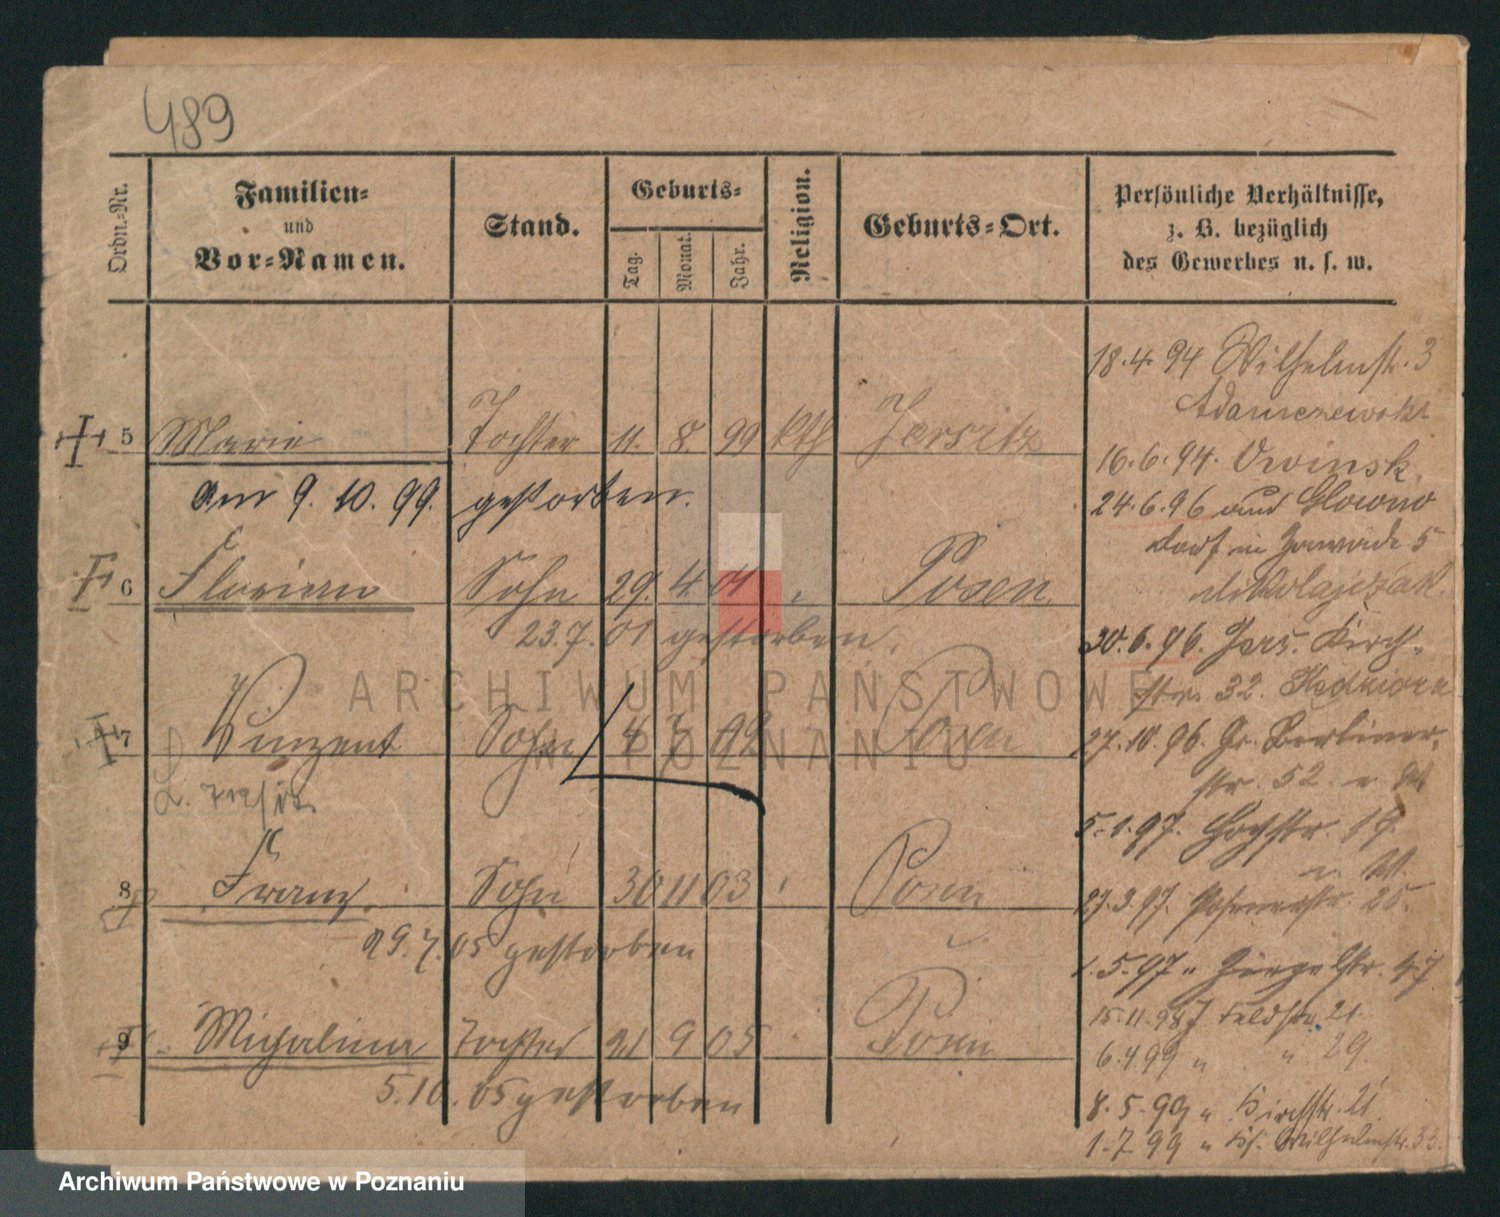 489
Ordn.-Nr.
Familien-
und
Vor-Namen.
Stand.
Geburts-
Tag.
Monat.
Jahr.
Religion.
Geburts-Ort.
Persönliche Verhältnisse,
z. B. bezüglich
des Gewerbes u. s. w.
5 Marie Tochter 11. 8. 99 kth Jersitz
am 9. 10. 99. gestorben.
6 Florian Sohn 29. 4. 01 Posen
23. 7. 01 gestorben.
7 Vinzent Sohn 4 7 02 Posen
8 Franz Sohn 30 11 03 Posen
29. 7. 05 gestorben
9 Michalina Tochter 21 9 05 Posen
5. 10. 05 gestorben
18. 4. 94 Wilhelmstr. 3
Adamczewski
16. 6. 94. Owinsk.
24. 6. 96 aus Glowno
Dorf 5
Mikolajczak
30. 6. 96. Jers. Kirch-
str. 32. Kedziora
27. 10. 96. Gr. Berliner-
str. 52
5. 1. 97. Hochstr. 19.
27. 3. 97. Posenerstr. 25.
1. 5. 97 " 47
15. 11. 98 Feldstr. 21
6. 4 99 " " 29
8. 5. 99 " Kirchstr. 21
1. 7. 99 " Wilhelmstr. 33.
ARCHIWUM PAŃSTWOWE
W POZNANIU
Archiwum Państwowe w Poznaniu